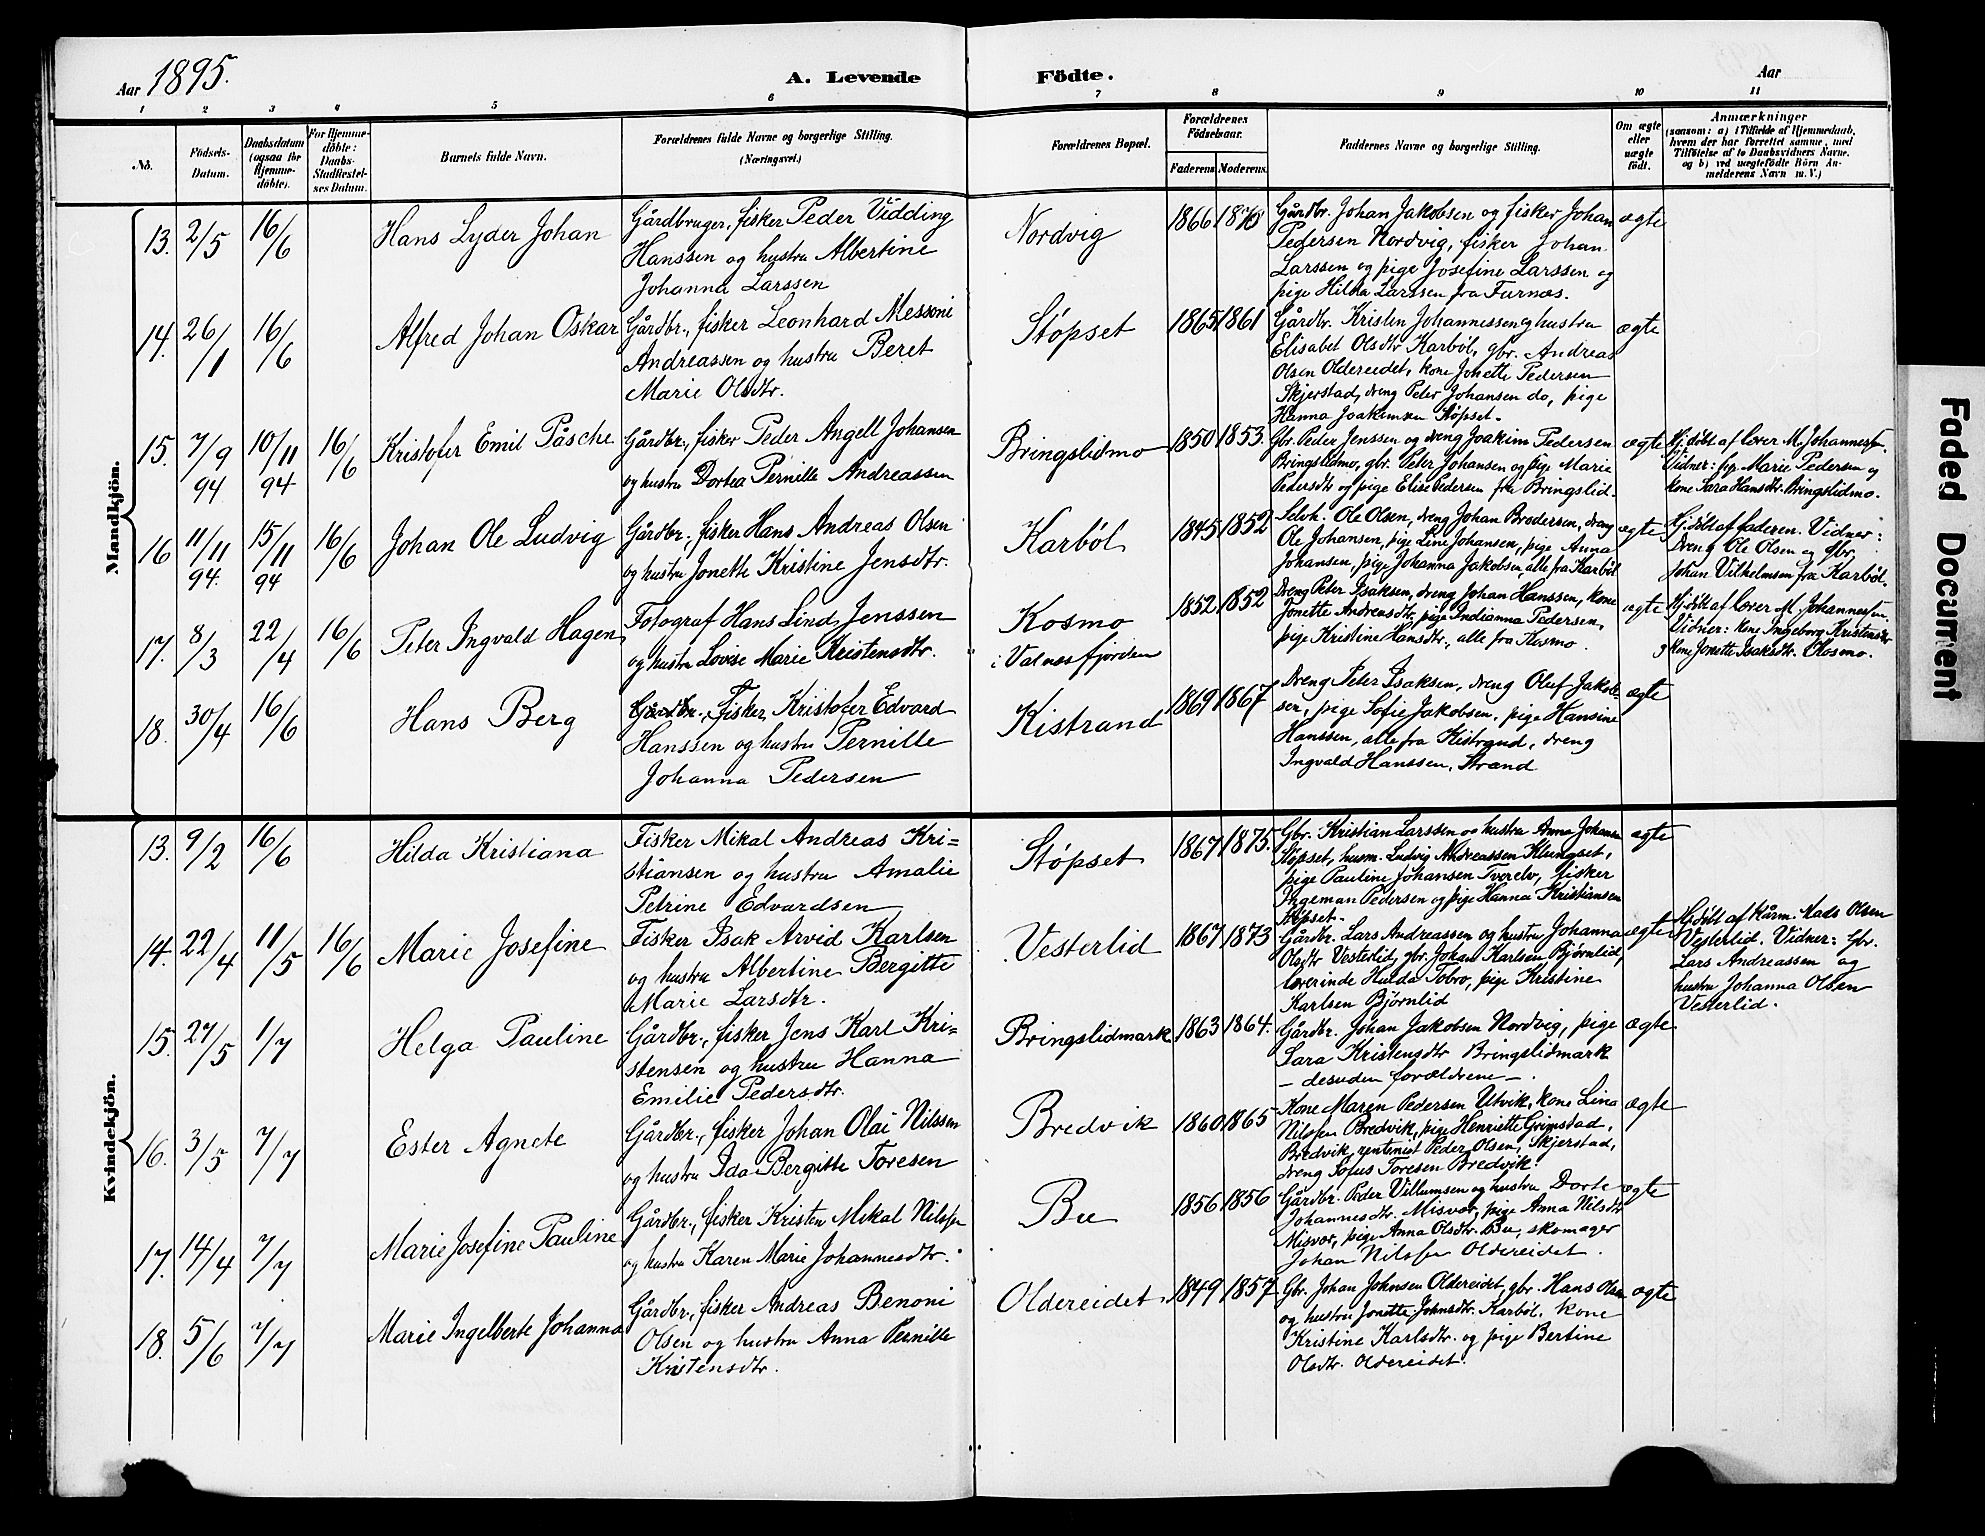 Aar 1895.
A. Levende Födte.
Aar
1 2 3 4 5 6 7 8 9 10 11
No.
Födsels-Datum.
Daabsdatum (ogsaa for Hjemme-döbte).
For Hjemme-döbte: Daabs-Stadfæstel-ses Datum.
Barnets fulde Navn.
Forældrenes fulde Navne og borgerlige Stilling.
(Næringsvei.)
Forældrenes Bopæl.
Forældrenes Födselsaar.
Faderens. Moderens.
Faddernes Navne og borgerlige Stilling.
Om ægte eller uægte födt.
Anmærkninger
(saasom: a) i Tilfælde af Hjemmedaab, hvem der har forrettet samme, med Tilföielse af to Daabsvidners Navne, og b) ved uægtefödte Börn An-melderens Navn m. V.)
Mandkjön.
13. 2/5 16/6 Hans Lyder Johan
Gårdbruger, fisker Peder Vidding
Hanssen og hustru Albertine
Johanna Larssen
Nordvig 1866
Gårdbr. Johan Jakobsen og fisker Johan
Pedersen Nordvig, fisker Johan
Larssen og pige Josefine Larssen og
pige Hilda Larssen fra Furnæs.
ægte
14. 26/1 16/6 Alfred Johan Oskar
Gårdbr., fisker Leonhard Messoni
Andreassen og hustru Beret
Marie Olsdtr.
Støpset 1865 1861
Gårdbr. Kristen Johannessen og hustru
Elisabet Olsdtr Karbøl, gbr. Andreas
Olsen Oldereidet, kone Jonette Pedersen
Skjerstad, dreng Peter Johansen do, pige
Hanna Joakimsen Støpset.
ægte
15. 7/9 94 10/11 94 16/6 Kristofer Emil Påsche
Gårdbr., fisker Peder Angell Johansen
og hustru Dortea Pernille Andreassen
Bringslidmo 1850 1853.
Gbr. Peder Jenssen og dreng Joakim Pedersen
Bringslidmo, gbr. Peter Johansen og pige Marie
Pedersdtr og pige Elise Pedersen fra Bringslid.
ægte
Hj.døbt af lærer M. Johannessen.
Vidner: pig. Marie Pedersen og
kone Sara Hansdtr. Bringslidmo.
16 11/11 94. 15/11 94 16/6 Johan Ole Ludvig
Gårdbr., fisker Hans Andreas Olsen
og hustru Jonette Kristine Jensdtr.
Karbøl 1845 1852
Selvh. Ole Olsen, dreng Johan Brodersen, dreng
Ole Johansen, pige Line Johansen, pige Anna
Johansen, pige Johanna Jakobsen, alle fra Karbøl
ægte
Hj. døbt af faderen. Vidner:
Dreng Ole Olsen og Gbr,
Johan Vilhelmsen fra Karbøl.
17. 8/3 22/4 16/6 Peter Ingvald Hagen
Fotograf Hans Lind Jenssen
og hustru Lovise Marie Kristensdtr.
Kosmo
i Valnesfjorden
1852 1852
Dreng Peter Isaksen, dreng Johan Hanssen, kone
Jonette Andreasdtr, pige Indianna Pedersen,
pige Kristine Hansdtr, alle fra Kosmo.
ægte
Hj.døbt af lærer M. Johannessen.
Vidner: kone Ingeborg Kristensdtr
kone Jonette Isaksdtr. Kosmo.
18. 30/4 16/6 Hans Berg
Gårdbr., Fisker Kristofer Edvard
Hanssen og hustru Pernille
Johanna Pedersen
Kistrand 1869 1867
Dreng Peter Isaksen, dreng Oluf Jakob-
sen, pige Sofie Jakobsen, pige Hansine
Hanssen, alle fra Kistrand, dreng
Ingvald Hanssen, Strand
ægte
Kvindekjön.
13. 9/2 16/6 Hilda Kristiana
Fisker Mikal Andreas Kri=
stiansen og hustru Amalie
Petrine Edvardsen
Støpset 1867 1875.
Gbr. Kristian Larssen og hustru Anna Johansen
Støpset, husm. Ludvig Andreassen Klungset,
pige Pauline Johansen Tverelv, fisker
Ingeman Pedersen og pige Hanna Kristiansen
Støpset.
ægte
14. 22/4 11/5 16/6 Marie Josefine
Fisker Isak Arvid Karlsen
og hustru Albertine Bergitte
Marie Larsdtr.
Vesterlid 1867 1873
Gårdbr. Lars Andreassen og hustru Johanna
Olsdtr Vesterlid, gbr. Johan Karlsen Bjørnlid,
lærerinde Hulda Tobro, pige Kristine
Karlsen Bjørnlid
ægte
Hj.døbt af Kårm. Mads Olsen
Vesterlid. Vidner: Gbr.
Lars Andreassen og
hustru Johanna Olsen
Vesterlid.
15. 27/5 1/7 Helga Pauline
Gårdbr., fisker Jens Karl Kri=
stensen og hustru Hanna
Emilie Pedersdtr.
Bringslidmark 1863 1864.
Gårdbr. Johan Jakobsen Nordvig, pige
Sara Kristensdtr Bringslidmark
— desuden forældrene —.
ægte
16. 3/5 7/7 Ester Agnete
Gårdbr., fisker Johan Olai Nilssen
og hustru Ida Bergitte Toresen
Bredvik 1860 1865
Kone Maren Pedersen Utvik, kone Lina
Nilssen Bredvik, pige Henriette Grimstad,
Bredvik, rentenist Peder Olsen, Skjerstad,
dreng Sofus Toresen Bredvik.
ægte
17. 14/4 7/7 Marie Josefine Pauline
Gårdbr., fisker Kristen Mikal Nilssen
og hustru Karen Marie Johannesdtr.
Bu 1856 1856
Gårdbr. Peder Villumsen og hustru Dorte
Johannesdtr. Misvær, pige Anna Nilsdtr
Misvær, pige Anna Olsdtr. Bu, skomager
Johan Nilssen Oldereidet.
ægte
18. 5/6 7/7 Marie Ingelberte Johanna
Gårdbr., fisker Andreas Benoni
Olsen og hustru Anna Pernille
Kristensdtr.
Oldereidet 1849 1857
Gbr. Johan Johnsen Oldereidet, gbr. Hans Olsen
og hustru Jonette Johnsdtr. Karbøl, kone
Kristine Karlsdtr. og pige Bertine
Olsdtr. Oldereidet.
ægte
Faded Document